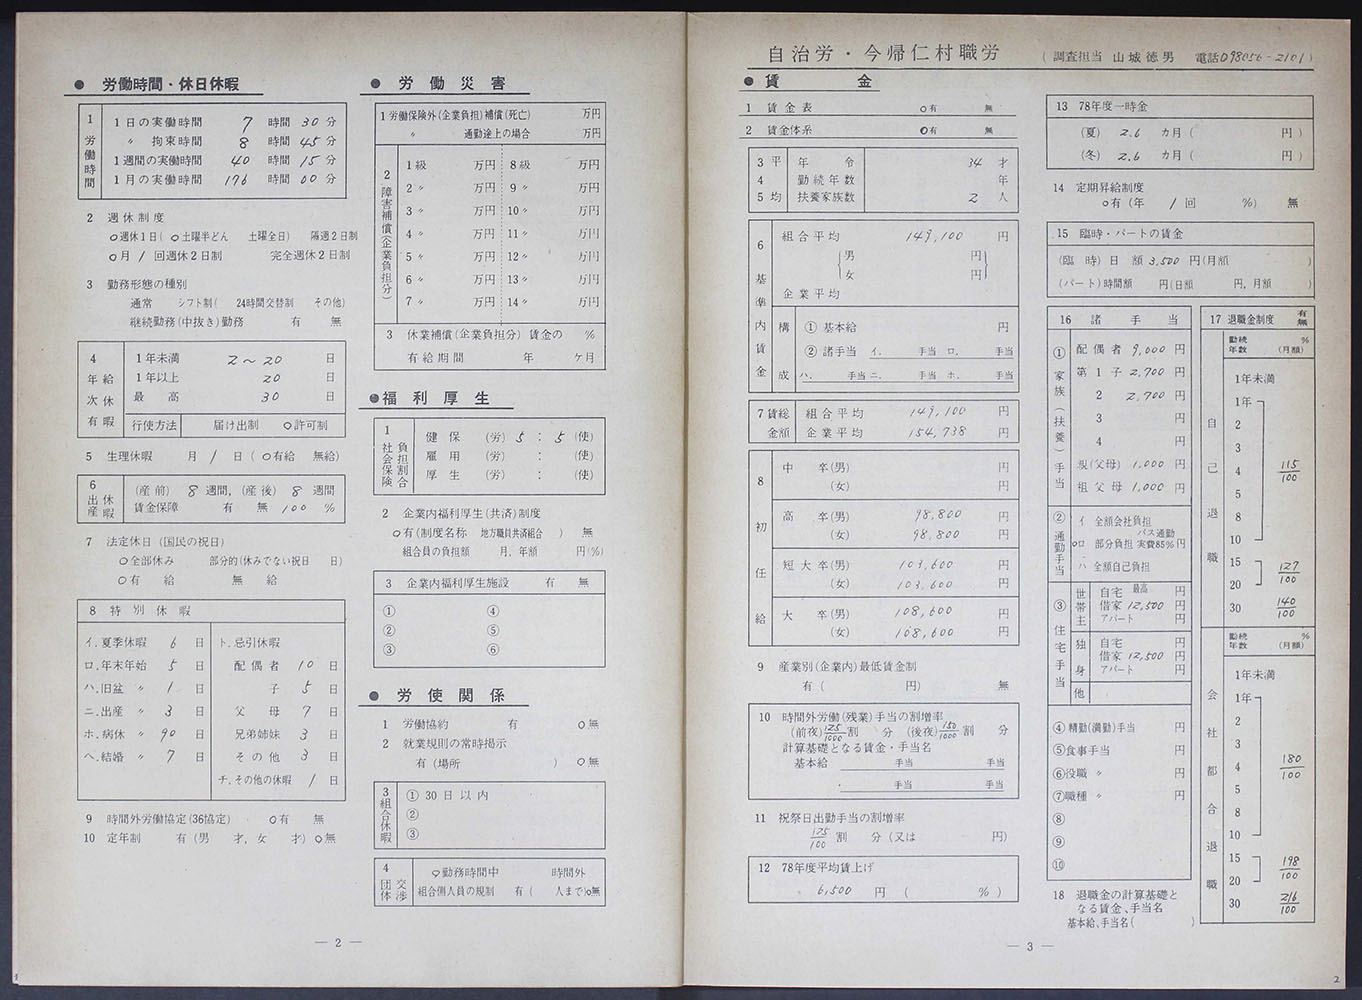 ● 労働時間・休日休暇
1 労働時間
1日の実働時間 7 時間 30 分
〃 拘束時間 8 時間 45 分
1週間の実働時間 40 時間 15 分
1月の実働時間 176 時間 00 分
2 週休制度
○週休1日( ○土曜半どん 土曜全日) 隔週2日制
○月 1 回週休2日制 完全週休2日制
3 勤務形態の種別
通常 シフト制( 24時間交替制 その他)
継続勤務(中抜き)勤務 有 無
4 年次有給休暇
1年未満 2〜20 日
1年以上 20 日
最高 30 日
行使方法 届け出制 ○許可制
5 生理休暇 月 1 日 ( ○有給 無給)
6 出産休暇
(産前) 8 週間, (産後) 8 週間
賃金保障 有 無 100 %
7 法定休日 (国民の祝日)
○全部休み 部分的(休みでない祝日 日)
○有給 無給
8 特別休暇
イ.夏季休暇 6 日
ロ.年末年始 5 日
ハ.旧盆 〃 1 日
ニ.出産 〃 3 日
ホ.病休 〃 90 日
ヘ.結婚 〃 7 日
ト.忌引休暇
配偶者 10 日
子 5 日
父母 7 日
兄弟姉妹 3 日
その他 3 日
チ.その他の休暇 1 日
9 時間外労働協定(36協定) ○有 無
10 定年制 有(男 才, 女 才) ○無
● 労働災害
1 労働保険外(企業負担)補償(死亡) 万円
〃 通勤途上の場合 万円
2 障害補償(企業負担分)
1級 万円 8級 万円
2〃 万円 9〃 万円
3〃 万円 10〃 万円
4〃 万円 11〃 万円
5〃 万円 12〃 万円
6〃 万円 13〃 万円
7〃 万円 14〃 万円
3 休業補償(企業負担分) 賃金の %
有給期間 年 ケ月
●福利厚生
1 社会保険 負担割合
健保 (労) 5 : 5 (使)
雇用 (労) : (使)
厚生 (労) : (使)
2 企業内福利厚生(共済)制度
○有(制度名称 地方職員共済組合 ) 無
組合員の負担額 月、年額 円(%)
3 企業内福利厚生施設 有 無
① ④
② ⑤
③ ⑥
● 労使関係
1 労働協約 有 ○無
2 就業規則の常時掲示
有 (場所 ) ○無
3 組合休暇
① 30日以内
②
③
4 団体交渉
○勤務時間中 時間外
組合側人員の規制 有( 人まで)○無
— 2 —
自治労・今帰仁村職労 (調査担当 山城徳男 電話098056-2101)
● 賃金
1 賃金表 ○有 無
2 賃金体系 ○有 無
3 平 年令 34 才
4 勤続年数 年
5 均 扶養家族数 2 人
6 基準内賃金
組合平均 149,100 円
男 円
女 円
企業平均
構成
① 基本給 円
② 諸手当 イ. 手当 ロ. 手当
ハ. 手当 ニ. 手当 ホ. 手当
7 賃総金額
組合平均 149,100 円
企業平均 154,738 円
8 初任給
中卒(男) 円
(女) 円
高卒(男) 98,800 円
(女) 98,800 円
短大卒(男) 103,600 円
(女) 103,600 円
大卒(男) 108,600 円
(女) 108,600 円
9 産業別(企業内)最低賃金制
有 ( 円) 無
10 時間外労働(残業)手当の割増率
(前夜)125/1000割 分 (後夜)150/1000割 分
計算基礎となる賃金・手当名
基本給 手当 手当
手当 手当
11 祝祭日出勤手当の割増率
125/100 割 分 (又は 円)
12 78年度平均賃上げ
6,500 円 ( %)
13 78年度一時金
(夏) 2.6 カ月( 円)
(冬) 2.6 カ月( 円)
14 定期昇給制度
○有(年 1 回 %) 無
15 臨時・パートの賃金
(臨時) 日額 3,500 円(月額 )
(パート)時間額 円(日額 円, 月額 )
16 諸手当
① 家族(扶養)手当
配偶者 9,000 円
第1子 2,700 円
2 2,700 円
3 円
4 円
親(父母) 1,000 円
祖父母 1,000 円
② 通勤手当
イ 全額会社負担
バス通勤
○ロ 部分負担 実費85%円
ハ 全額自己負担
③ 住宅手当
世帯主
自宅 最高 円
借家 12,500 円
アパート 円
独身
自宅 円
借家 12,500 円
アパート 円
他
④ 精勤(満勤)手当 円
⑤ 食事手当 円
⑥ 役職 〃 円
⑦ 職種 〃 円
⑧
⑨
⑩
17 退職金制度 有 無
自己退職
勤続年数 % (月額)
1年未満
1年
2
3
4 115/100
5
8
10
15 127/100
20
30 140/100
会社都合退職
勤続年数 % (月額)
1年未満
1年
2
3
4 180/100
5
8
10
15 198/100
20
30 216/100
18 退職金の計算基礎となる賃金、手当名
基本給、手当名( )
— 3 —
2